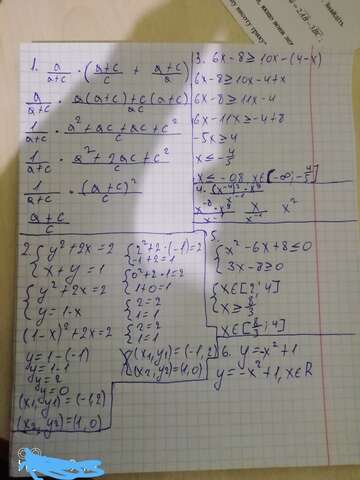 1. a/(a+c) · ((a+c)/c + (a+c)/a)
a/(a+c) · (a(a+c)+c(a+c))/ac
1/(a+c) · (a²+ac+ac+c²)/c
1/(a+c) · (a²+2ac+c²)/c
1/(a+c) · (a+c)²/c
(a+c)/c
2. { y²+2x=2
x+y=1
{ y²+2x=2
y=1-x
(1-x)²+2x=2
y=1-(-1)
y=1-1
y=2
y=0
(x₁,y₁)=(-1,2)
(x₂,y₂)=(1,0)
{ 2²+2·(-1)=2
-1+2=1
{ 0²+2·1=2
1+0=1
{ 2=2
1=1
{ 2=2
1=1
(x₁,y₁)=(-1,2)
(x₂,y₂)=(1,0)
3. 6x-8≥10x-(4-x)
6x-8≥10x-4+x
6x-8≥11x-4
6x-11x≥-4+8
-5x≥4
x≤-4/5
x≤-0,8 x∈[-∞;-4/5]
4. (x⁻⁴)²·x⁸
x⁻⁸·x⁸
x²
5.
{ x²-6x+8≤0
3x-8≥0
{ x∈[2;4]
x≥8/3
x∈[8/3;4]
6. y=-x²+1
y=-x²+1, x∈R